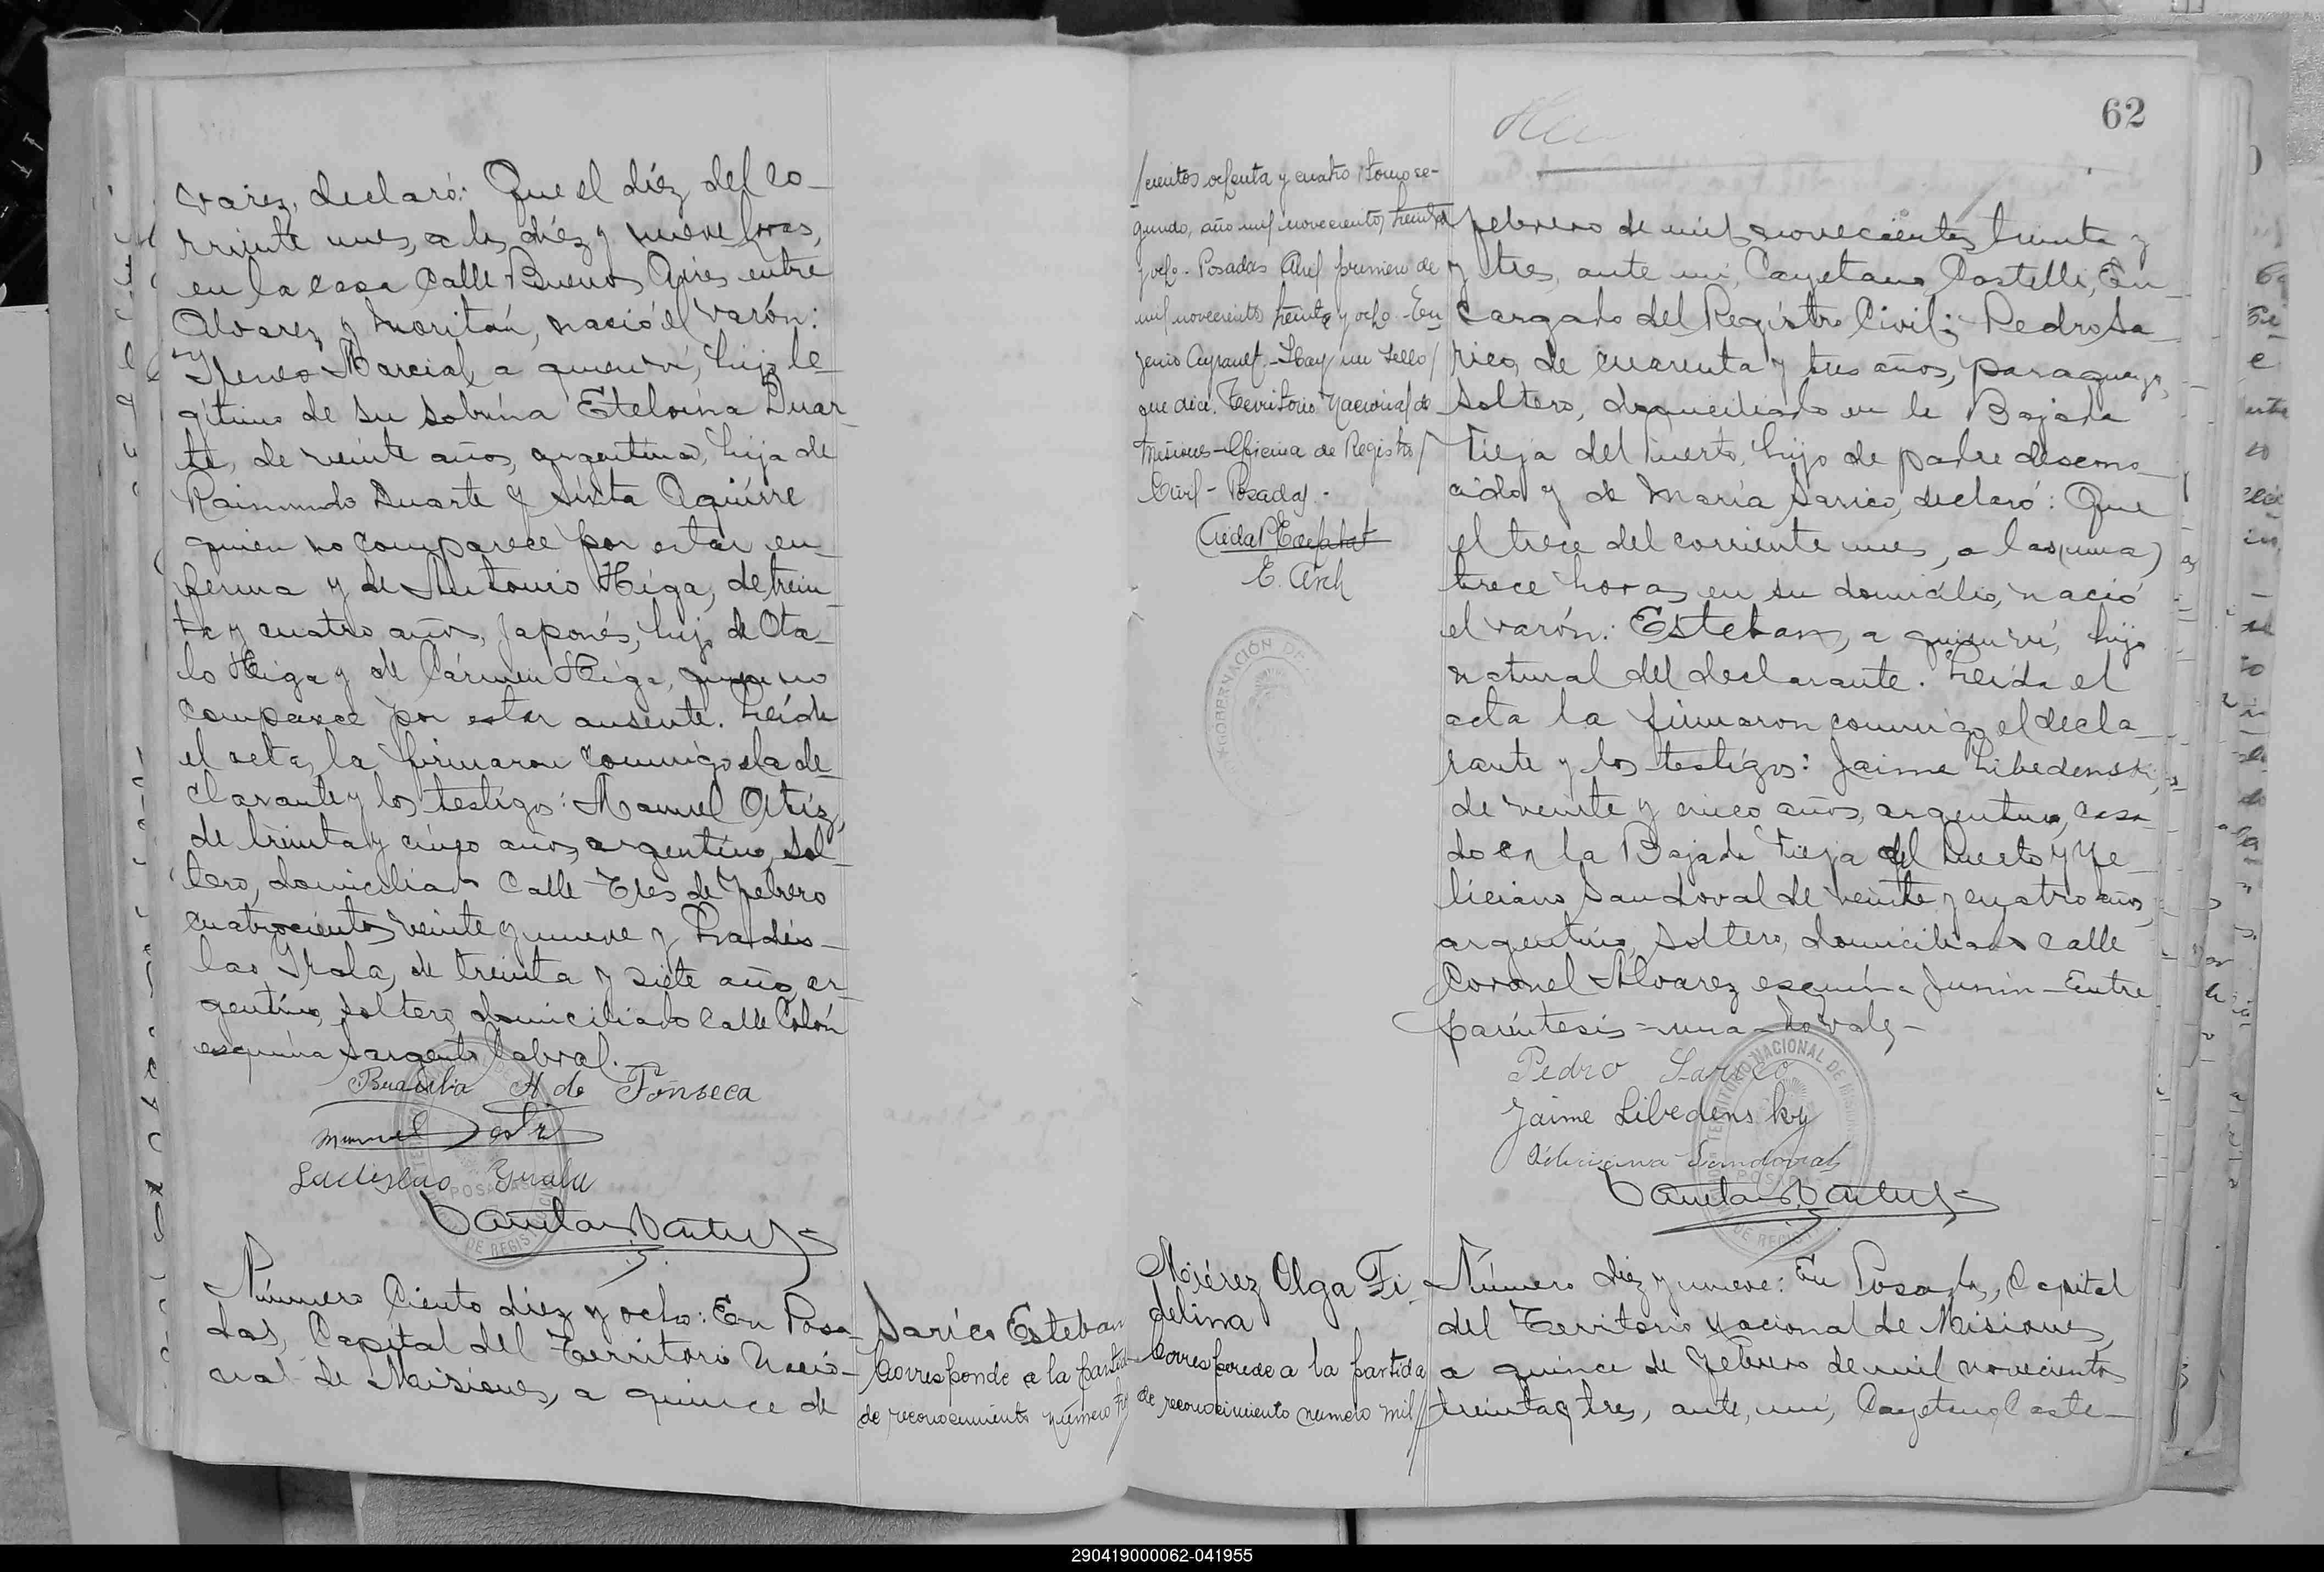 varez, declaró: Que el diéz del co-
rriente mes, a las diéz y nueve horas,
en la casa Calle Buenos Aires entre
Alvarez y Moritán, nació el varón:
Ireneo Marcial, a quien ví, hijo le-
gítimo de su sobrina Etelvina Duar-
te, de veinte años, argentina, hija de
Raimundo Duarte y Sixta Aguirre
quien no comparece por estar en-
ferma y de Antonio Higa, de trein-
ta y cuatro años, Japonés, hijo de Ota-
lo Higa y de Cármen Higa, no
comparece por estar ausente. Leída
el acta, la firmaron conmigo la de-
clarante y los testigos: Manuel Ortíz,
de treinta y cinco años, argentino, sol-
tero, domiciliado Calle Tres de Febrero
cuatrocientos veinte y nueve y Ladis-
lao Irala, de treinta y siete años, ar-
gentino, soltero, domiciliado Calle Colón
esquina Sargento Cabral.
H de Fonseca
Manuel
Ladislao Yrala
Número Ciento diéz y ocho: En Posa-
das, Capital del Territorio Nacio-
nal de Misiones, a quince de
Sarico Esteban
Corresponde a la partida
de reconocimiento número
62
/cientos ochenta y cuatro, tomo se-
gundo, año mil novecientos treinta
y ocho - Posadas Abril primero de
mil novecientos treinta y ocho - Eu
genio Ayrault. - Hay un sello/
que dice. Territorio Nacional de
Misiones - Oficina de Registro/
Civil - Posadas. -
E. Arch
GOBERNACIÓN DE
febrero de mil novecientos treinta y
y tres, ante mi, Cayetano Castelli, En-
cargado del Registro Civil; Pedro Sa-
rico, de cuarenta y tres años, paraguayo,
soltero, domiciliado en la Bajada
Vieja del Puerto, hijo de padre descono-
cido y de María Sarico, declaró: Que
el trece del corriente mes, a las (una)
trece horas en su domicilio, nació
el varón: Esteban, a quien ví, hijo
natural del declarante. Leída el
acta la firmaron conmigo el decla-
rante y los testigos: Jaime Libedensky,
de veinte y cinco años, argentino, casa-
do en la Bajada Vieja del Puerto y Fe-
liciano Sandoval de veinte y cuatro años,
argentino, soltero, domiciliado calle
Coronel Alvarez esquina Junin - Entre
paréntesis = una - no vale -
Pedro Sarico
Jaime Libedensky
Sandoval
TERRITORIO NACIONAL DE MISIONES
POSADAS
Miérez Olga Fi-
delina
Corresponde a la partida
de reconocimiento número mil/
Número diez y nueve: En Posadas, Capital
del Territorio Nacional de Misiones,
a quince de Febrero de mil novecientos
treinta y tres, ante, mi, Cayetano Caste-
290419000062-041955